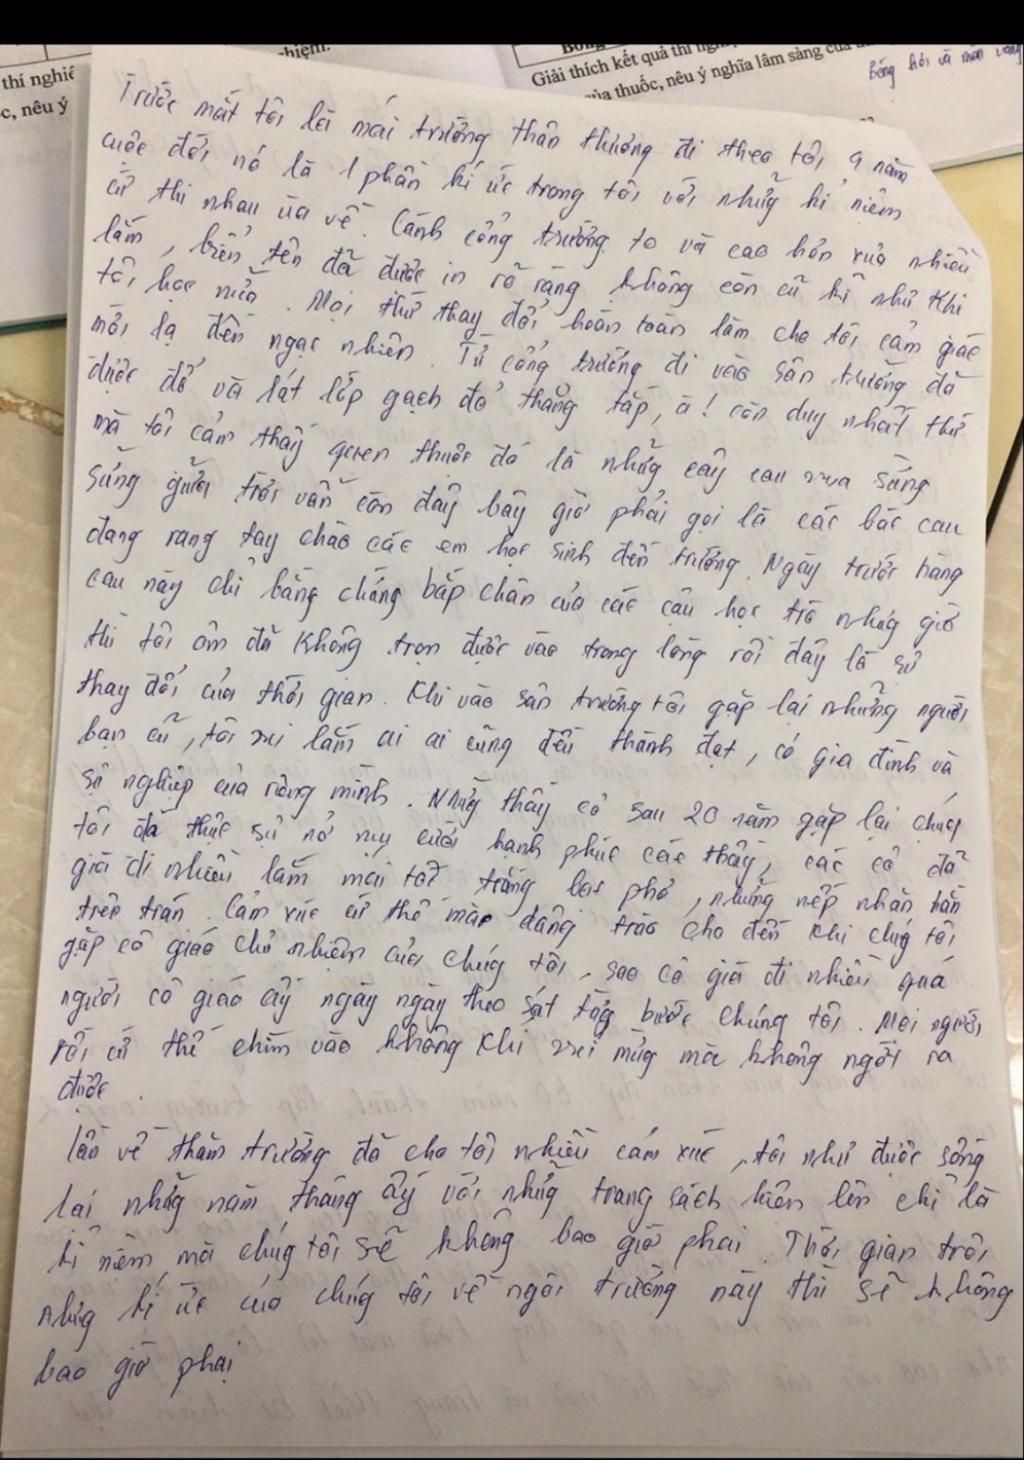 thí nghiệ
c, nêu ý
hiệm.
Giải thích kết quả thí ngh
của thuốc, nêu ý nghĩa lâm sàng của
Trước mắt tôi là mái trường thân thương đi theo tôi 9 năm
cuộc đời nó là 1 phần kí ức trong tôi với nhữg kỉ niệm
cứ thi nhau ùa về. Cánh cổng trường to và cao hơn xưa nhiều
lắm, biển tên đã được in rõ ràng không còn cũ kĩ như khi
tôi học nữa. Mọi thứ thay đổi hoàn toàn làm cho tôi cảm giác
mới lạ đến ngạc nhiên. Từ cổng trường đi vào sân trường đã
được đổ và lát lớp gạch đỏ thẳng tắp, à! còn duy nhất thứ
mà tôi cảm thấy quen thuộc đó là nhữg cây cau vua sừng
sững giữa trời vẫn còn đấy bây giờ phải gọi là các bác cau
đang rang tay chào các em học sinh đến trường. Ngày trước hàng
cau này chỉ bằng chừng bắp chân của các cậu học trò nhưg giờ
thì tôi ôm đã không trọn được vào trong lòng rồi đấy là sự
thay đổi của thời gian. Khi vào sân trường tôi gặp lại những người
bạn cũ, tôi vui lắm ai ai cũng đều thành đạt, có gia đình và
sự nghiệp của riêng mình. Nhữg thầy cô sau 20 năm gặp lại chúg
tôi đã thực sự nở nụ cười hạnh phúc các thầy, các cô đã
già đi nhiều lắm mái tóc trắng bạc phơ, những nếp nhăn hằn
trên trán. Cảm xúc cứ thế mà dâng trào cho đến khi chúg tôi
gặp cô giáo chủ nhiệm của chúg tôi, sao cô già đi nhiều quá
người cô giáo ấy ngày ngày theo sát từg bước chúng tôi. Mọi người
rồi cứ thế chìm vào không khí vui mừg mà không ngớt ra
được.
lần về thăm trường đã cho tôi nhiều cảm xúc, tôi như được sống
lại nhữg năm tháng ấy với nhữg trang sách hiện lên chỉ là
kỉ niệm mà chúg tôi sẽ không bao giờ phai. Thời gian trôi
nhưg kí ức của chúg tôi về ngôi trường này thì sẽ không
bao giờ phai